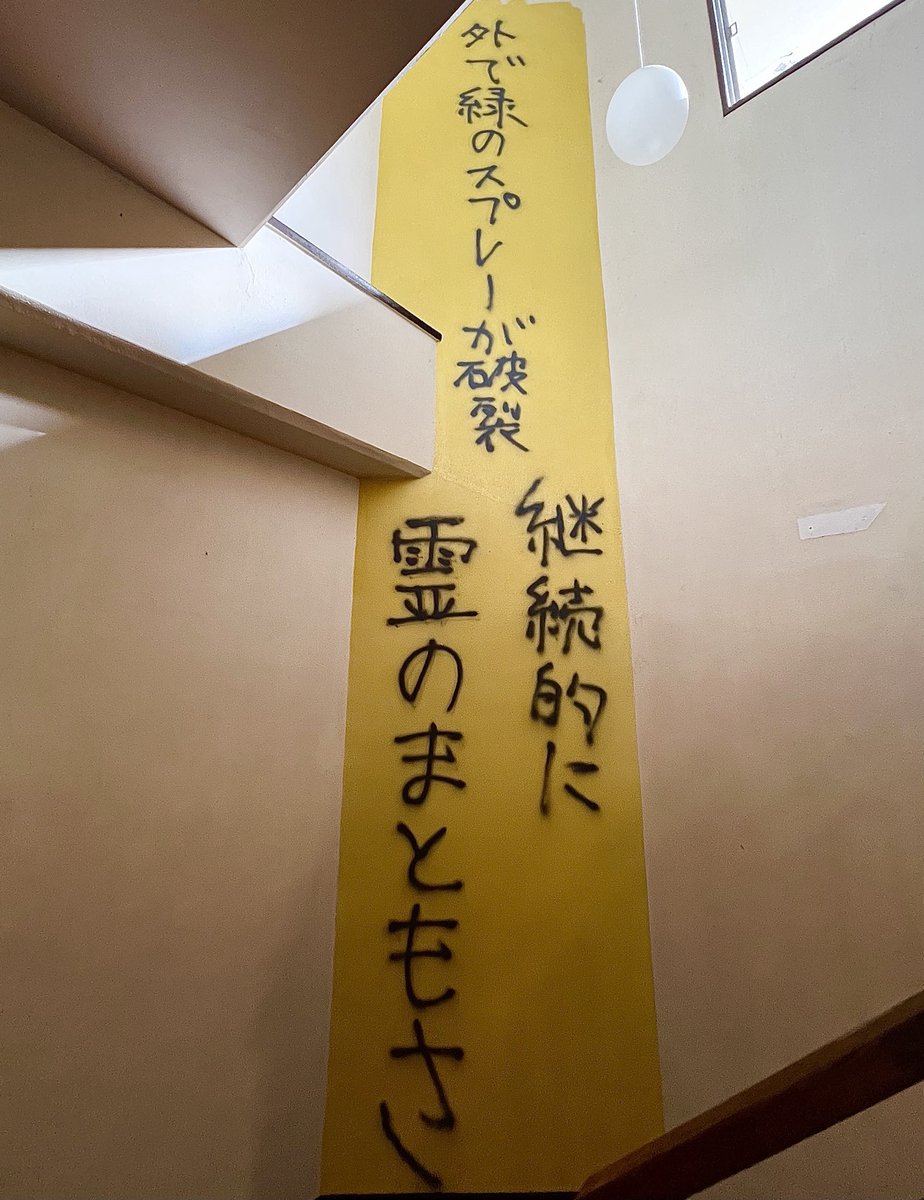 外で緑のスプレーが破裂
継続的に
霊のまともさ